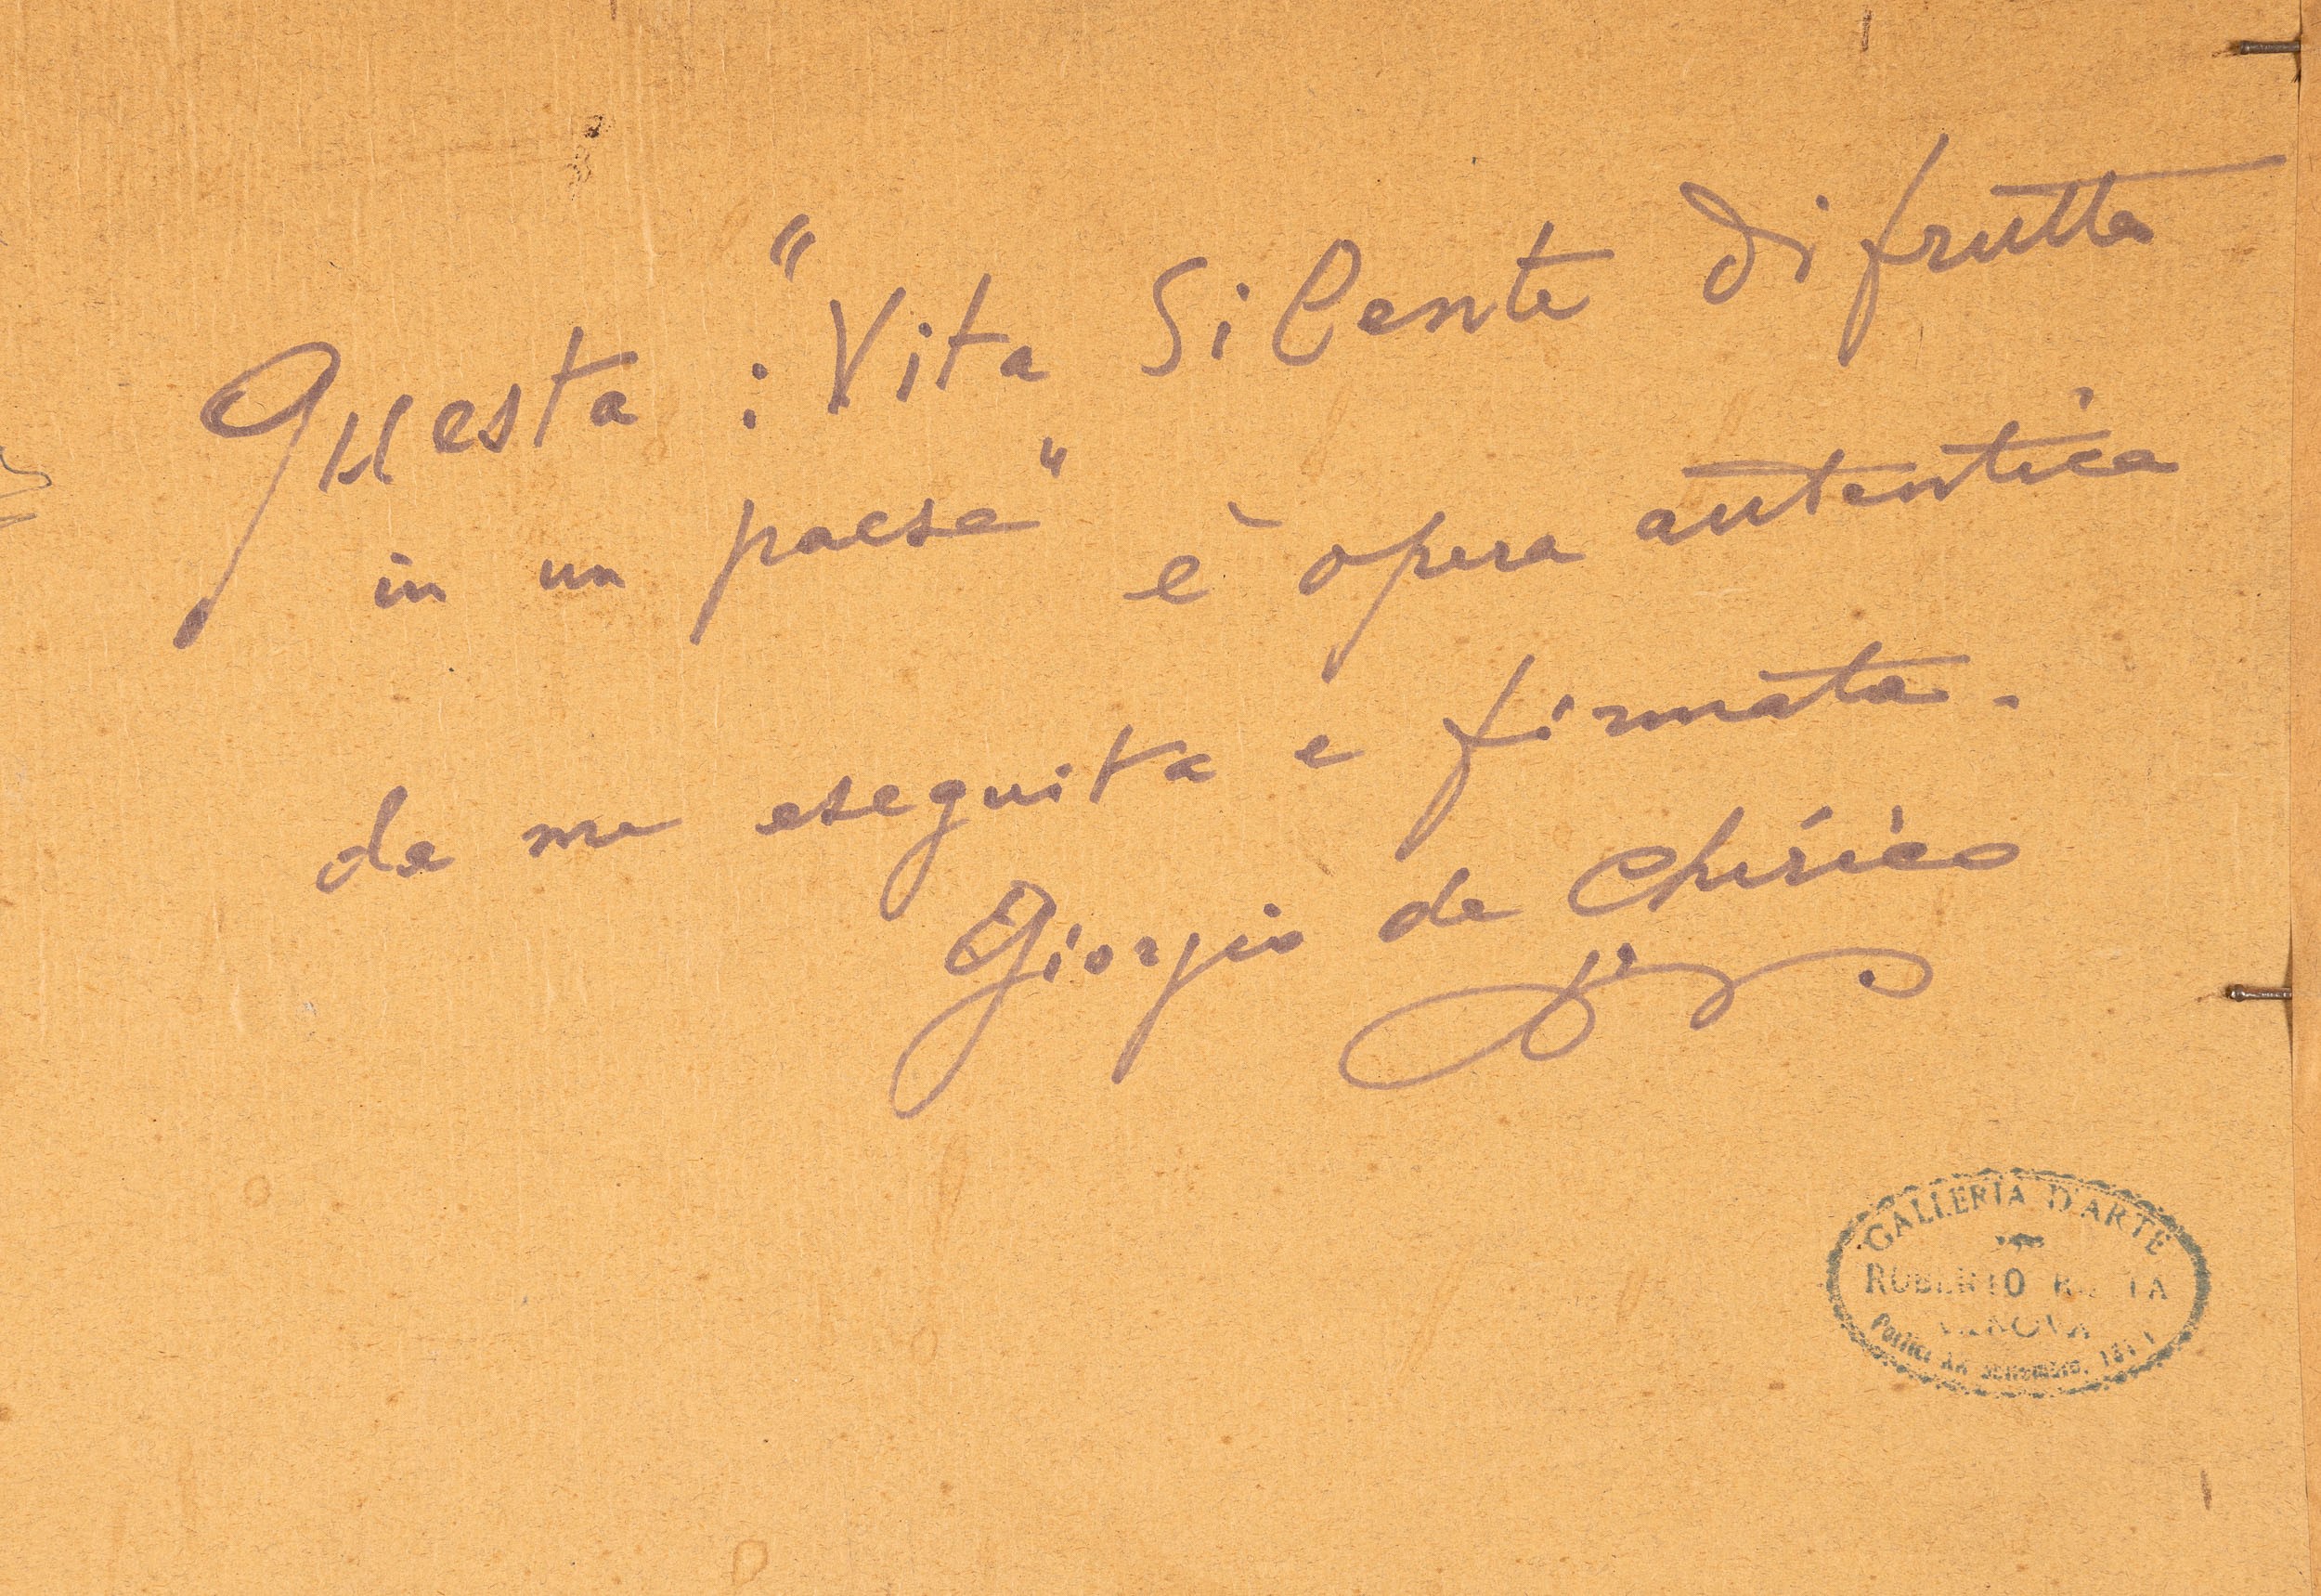 Questa : "Vita Silente di frutta
in un paese" è opera autentica
da me eseguita e firmata.
Giorgio de Chirico
GALLERIA D'ARTE
ROBERTO
GENOVA
Portici XX Settembre,